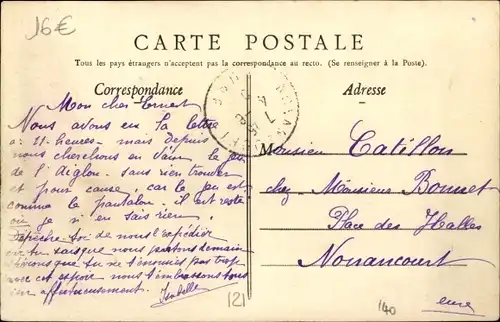 16€
CARTE POSTALE
Tous les pays étrangers n'acceptent pas la correspondance au recto. (Se renseigner à la Poste).
Correspondance
Adresse
Mon cher Ernest
Nous avons eu Ta lettre
à 11 heures - mais depuis
nous cherchons en vain le jeu
de l'Aiglon. sans rien trouver
et pour cause, car le jeu est
comme le pantalon. il est resté
où je n'en sais rien.
Dépêche-toi de nous l'expédier
nous partons demain
que tu ne t'ennuies pas trop
cet espoir nous t'embrassons tous
affectueusement. Isabelle
Monsieur Catillon
chez Monsieur Bonnet
Place des Halles
Nonancourt
eure
121
140